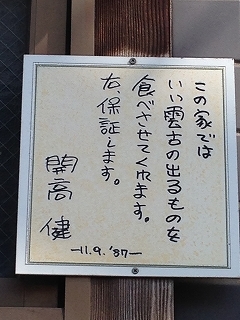 この家では
いい雲古の出るものを
食べさせてくれます。
右、保証します。
開高 健
—11.9.'87—